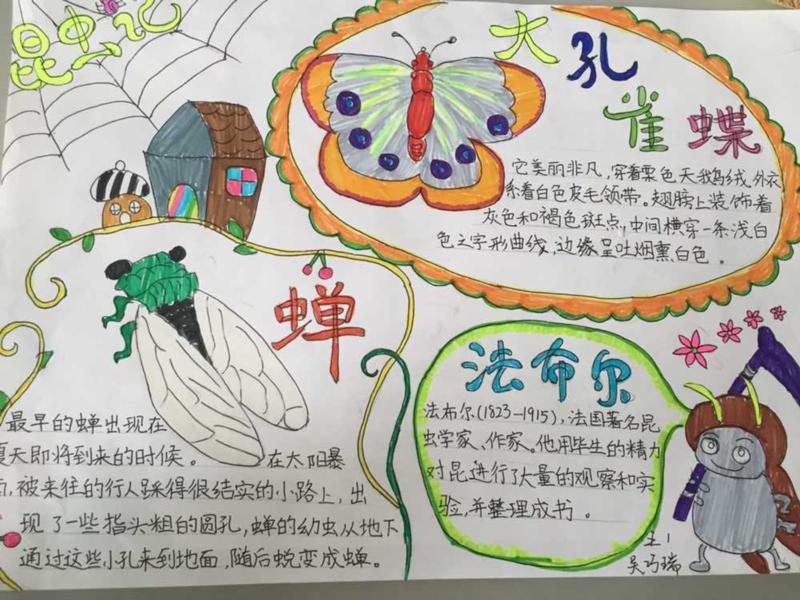 昆虫记
大孔雀蝶
它美丽非凡,穿着栗色天鹅绒外衣
系着白色皮毛领带。翅膀上装饰着
灰色和褐色斑点,中间横穿一条浅白
色之字形曲线,边缘呈吐烟熏白色。
蝉
最早的蝉出现在
夏天即将到来的时候。 在太阳暴
被来往的行人踩得很结实的小路上,出
现了一些指头粗的圆孔,蝉的幼虫从地下
通过这些小孔来到地面,随后蜕变成蝉。
法布尔
法布尔(1823-1915),法国著名昆
虫学家、作家。他用毕生的精力
对昆进行了大量的观察和实
验,并整理成书。
吴巧瑞